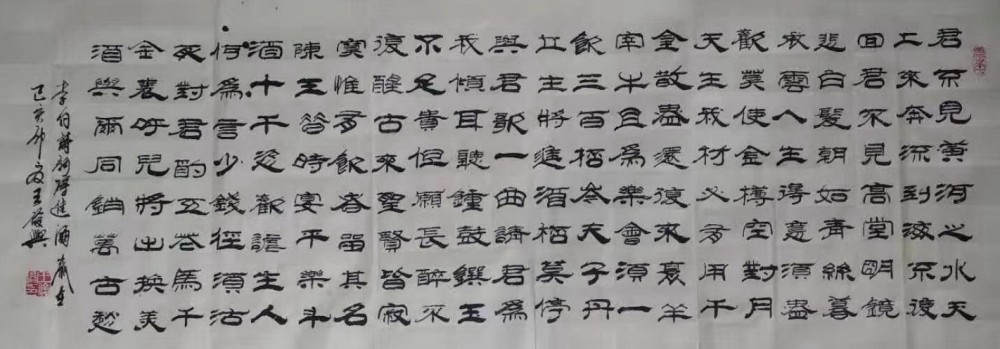 君不見黃河之水天
上來奔流到海不復
回君不見高堂明鏡
悲白髮朝如青絲暮
成雪人生得意須盡
歡莫使金樽空對月
天生我材必有用千
金散盡還復來烹羊
宰牛且為樂會須一
飲三百杯岑夫子丹
丘生將進酒杯莫停
與君歌一曲請君為
我傾耳聽鐘鼓饌玉
不足貴但願長醉不
復醒古來聖賢皆寂
寞惟有飲者留其名
陳王昔時宴平樂斗
酒十千恣歡謔主人
何為言少錢徑須沽
死對君酌五花馬千
金裘呼兒將出換美
酒與爾同銷萬古愁
李伯詩詞將進酒歲在